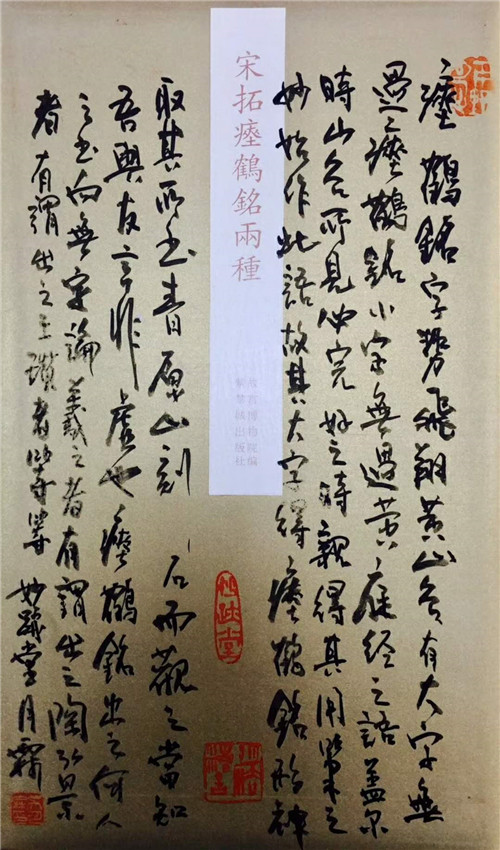 瘞鶴銘字勢飛翔黃山谷有大字無
過之瘞鶴銘小字無過黃庭經之語蓋爾
時山谷所見完好之時親得其用筆之
妙始作此語故其大字得瘞鶴銘形神
宋拓瘞鶴銘兩種
故宮博物院編
紫禁城出版社
取其所書青原山刻石而觀之當知
吾與友言非虛也瘞鶴銘出之何人
之書向無定論羲之者有謂出之陶弘景
者有謂出之王瓚者等等妙蹟堂月霖